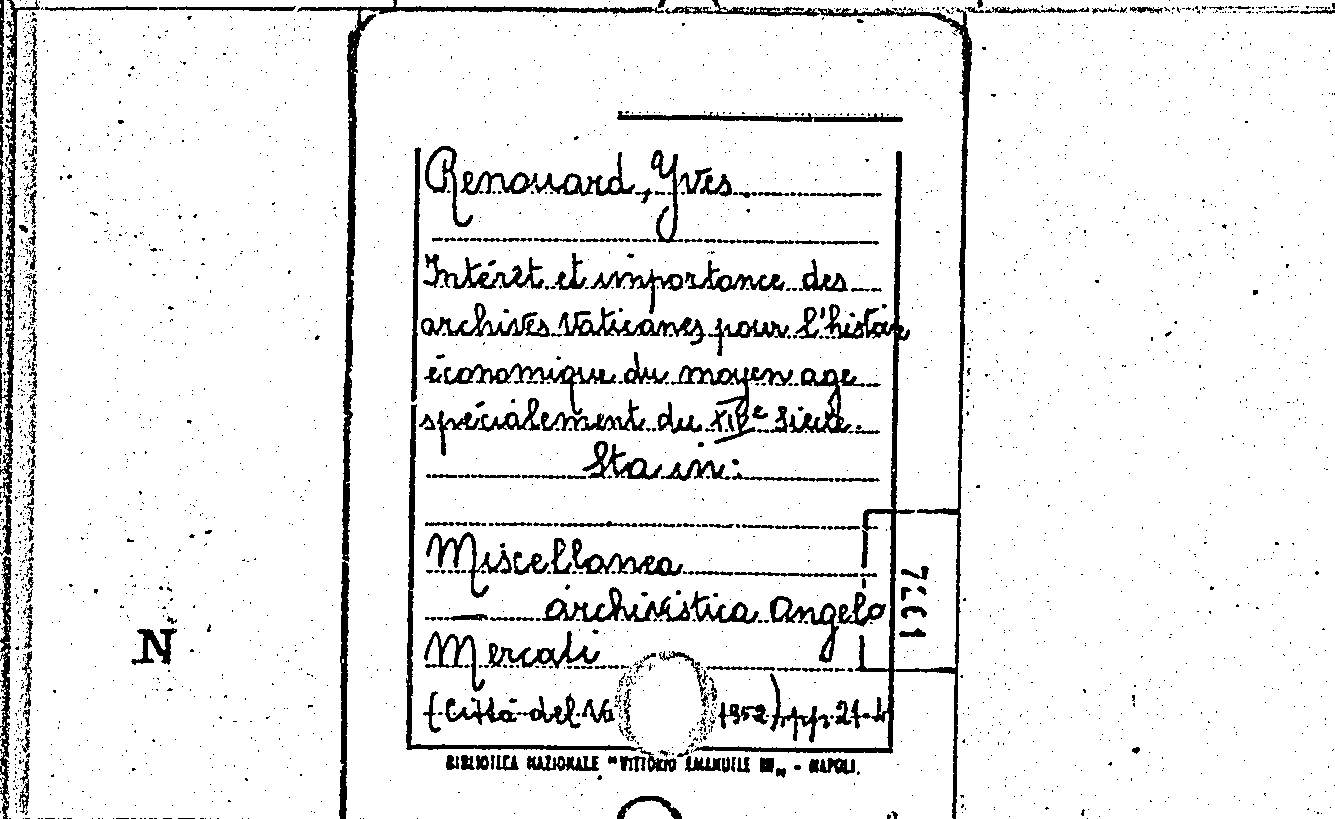 Renouard, Yves.
Intérêt et importance des
archives Vaticanes pour l'histoire
économique du moyen age
spécialement du XIVe siècle.
Sta in:
Miscellanea
archivistica Angelo
Mercati
(Città del Va 1952) pp. 21-
BIBLIOTECA NAZIONALE "VITTORIO EMANUELE III" - NAPOLI.
N